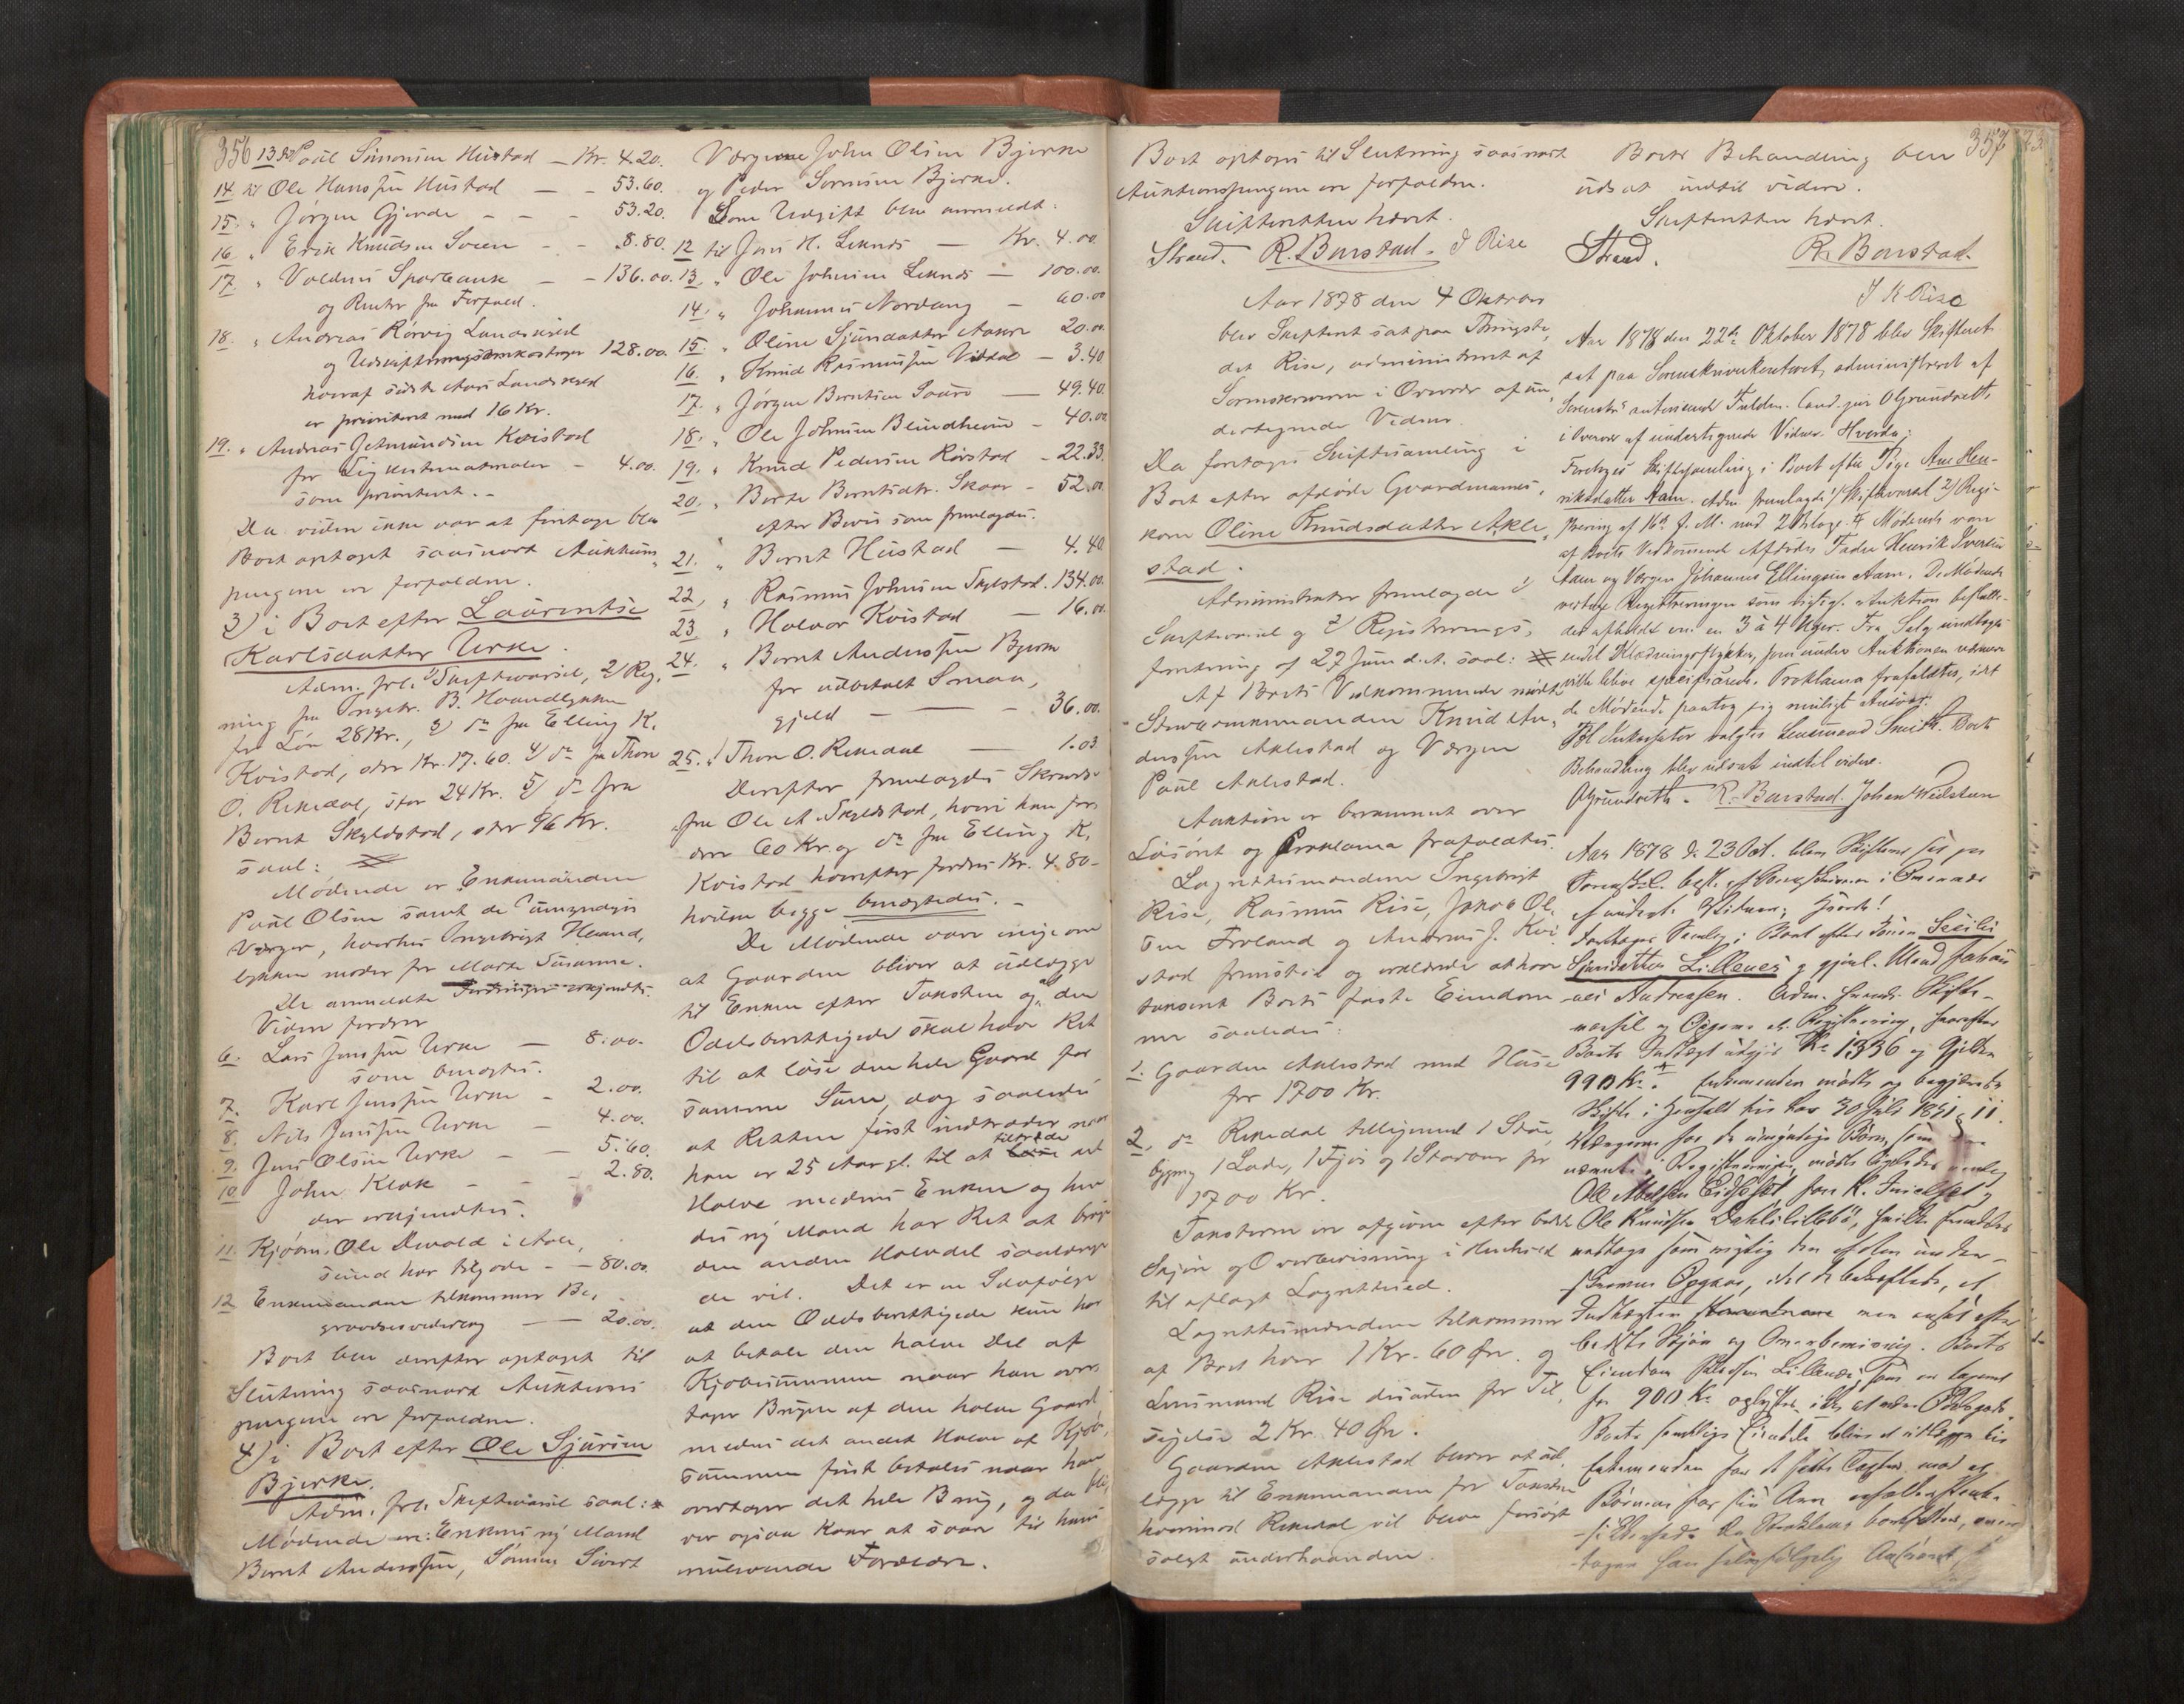 356
13 til Paul Simonsen Hustad — Kr. 4.20.
14 til Ole Hanssen Hustad — - 53.60.
15. " Jørgen Gjerde - - - 53.20.
16. " Erik Knudsen Soeen - - 8.80.
17. " Voldens Sparebank - - 136.00.
og Renter fra Forfald.
18. " Andreas Rørvig Landskyld
og Udskiftningsomkostninger 128.00.
hvoraf sidste Aars Landskyld
er prioriteret med 16 Kr.
19. " Andreas Jetmundsen Kvistad
for Ligkistematerialer - 4.00.
som prioriteret. -
Da videre ikke var at foretage blev
Boet optaget saasnart Auktions-
pengene ere forfaldne.
3) i Boet efter Laurentse
Karlsdatter Urke.
Adm. frl. 1) Skiftevarsel, 2) Reg.
ning fra Ingebr. B. Haandlykken
for Løn 28 Kr., 3) do fra Elling K.
Kvistad, stor Kr. 17.60. 4) do fra Thore
O. Rekedal, stor 24 Kr. 5) do fra
Bernt Skylstad, stor 96 Kr.
saal:
Mødende er Enkemanden
Paul Olsen samt de umyndiges
Værger, hvorhos Ingebrigt Haand,
lykken møder for Marte Susanne.
De anmeldte Fordringer erkjendtes.
Videre fordrer
6. Lars Jenssen Urke — 8.00.
som benægtes.
7. Karl Jenssen Urke - 2.00.
8. Nils Jenssen Urke — 4.00.
9. Jens Olsen Urke - — 5.60.
10 John Klok - - - 2.80.
der erkjendtes.
11. Kjøbm. Ole Devold i Aale,
sund har tilgode - - 80.00.
12 Enkemanden tilkommer Be,
gravelsesvederlag — - 20.00.
Boet blev derefter optaget til
Slutning saasnart Auktions
pengene ere forfaldne.
4) i Boet efter Ole Sjursen
Bjerke.
Adm. frl. Skiftevarsel saal:
Mødende ere: Enkens ny Mand
Bernt Anderssen, Sønnen Sivert
Værgerne John Olsen Bjerke
og Peder Sørensen Bjerke.
Som Udgift blev anmeldt:
12 til Jens H. Leknes — Kr. 4.00.
13. " Ole Johnsen Leknes — 100.00.
14. " Johannes Nordang - 60.00
15. " Oline Sjursdatter Aakre 20.00.
16. " Knud Rasmussen Viddal — 3.40.
17. " Jørgen Berntsen Saure — 49.40.
18. " Ole Johnsen Blindheim - 40.00
19. " Knud Pedersen Rørstad - 22.33.
20. " Berte Berntsdtr. Skaar - 52.00
efter Bevis som fremlagdes.
21. " Bernt Hustad — 4.40.
22. " Rasmus Johnsen Skylstad. 134.00.
23. " Halvor Kvistad — 16.00.
24. " Bernt Anderssen Bjerke
for udbetalt Smaa,
gjeld — — - 36.00.
25. " Thore O. Rekedal — 1.03
Derefter fremlagdes Skrivelse
fra Ole A. Skylstad, hvori han for,
drer 60 Kr. og do fra Elling K.
Kvistad hvorefter fordres Kr. 4.80 -
hvilke begge benægtedes. -
De Mødende vare enige om
at Gaarden bliver at udlægge
til Enken efter Taksten og den
Odelsberettigede skal have Ret
til at løse den hele Gaard for
samme Sum, dog saaledes
at Retten først indtræder naar
han er 25 Aar gl. til at tiltræde det
Halve medens Enken og hen
des ny Mand har Ret at bruge
den anden Halvdel saalænge
de vil. Det er en Selvfølge
at den Odelsberettigede kun har
at betale den halve Del af
Kjøbesummen naar han over
tager Brugen af den halve Gaard,
medens det andet Halve af Kjøb,
summen først betales naar han
overtager det hele Brug, og da bli,
ver ogsaa Kaar at svare til hans
nulevende Forældre.
Boet optages til Slutning saasnart
Auktionspengene ere forfaldne.
Skifteretten hævet.
Strand. R. Barstad. J Rise
Aar 1878 den 4 Oktober
blev Skifteret sat paa Thingste,
det Rise, administreret af
Sorenskriveren i Overvær af un,
dertegnede Vidner.
Da foretoges Skiftesamling i
Boet efter afdøde Gaardmands,
kone Oline Knudsdatter Akle,
stad.
Administrator fremlagde 1)
Skiftevarsel og 2) Registrerings,
forretning af 27 Juni d. A. saal:
Af Boets Vedkommende mødte
Enkemanden Knud An,
derssen Aklestad og Værgen
Paul Aklestad.
Auktion er berammet over
Løsøret og Proklama frafaldtes.
Lagrettesmændene Ingebrigt
Rise, Rasmus Rise, Jakob Ol,
sen Frøland og Andreas J. Kvi
stad fremstod og erklærede at have
takseret Boets faste Eiendom
me saaledes:
1. Gaarden Aklestad med Huse
for 1700 Kr.
2. do Rekedal tilligemed 1 Stue,
bygning 1 Lade, 1 Fjøs og 1 Stabur for
1700 Kr.
Taksterne ere afgivne efter bedste
Skjøn og Overbevisning i Henhold
til aflagt Lagrettesed.
Lagrettesmændene tilkommer
af Boet hver 1 Kr. 60 Øre og
Lensmand Rise desuden for Til,
sigelse 2 Kr. 40 Øre.
Gaarden Aklestad bliver at ud,
lægge til Enkemanden for Taksten
hvorimod Rekedal vil blive forsøgt
solgt underhaanden.
357
Boets Behandling blev
udsat indtil videre.
Skifteretten hævet.
Strand. R. Barstad.
J K Rise
Aar 1878 den 22de Oktober 1878 blev Skifteret
sat paa Sorenskriverkontoret, administreret af
Sorenskr. autoriserede Fuldm. Cand. jur. O Grundseth
i Overvær af undertegnede Vidner. Hvorda;
Foretoges Skiftesamling i Boet efter Pige Ane Hen-
riksdatter Aam. Adm. fremlagde 1) Skiftevarsel 2) Regi-
strering af 16de f. M. med 2 Bilage. Mødende vare
af Boets Vedkommende Afdødes Fader Henrik Iversen
Aam og Værgen Johannes Ellingsen Aam. De Mødende
vedtage Registreringen som rigtig. Auktion besluttes
afholdt om en 3 à 4 Uger. Fra Salg undtages
endel Klædningsstykker, som under Auktionen nærmere
ville blive specificerede. Proklama frafaldtes, idet
de Mødende paatog sig muligt Ansvar.
Til Inkassator valgtes Lensmand Smith. Boets
Behandling blev udsat indtil videre.
OGrundseth. R. Barstad. Johan Welstum
Aar 1878 d. 23 Oct. blev Skifteret sat paa
Sorenskr. best. af Sorenskriveren i Overvær
af undert. Vidner; hvorda!
foretoges Samling i Boet efter Konen Secilie
Sjursdatter Lillenes g. gjenl. Mand Johan-
nes Andreassen. Adm. fremlr. Skifte-
varsel og Opgave ell. Registrering, hvorefter
Boets Indtægt udgjør Kr 1336 og Gjelden
990 Kr. Enkemanden mødte og begjærede
Skifte i Henhold til Lov 30 Juli 1851 § 11.
Værgerne for de umyndige Børn, som ere
nævnte i Registreringen, mødte ligeledes nemlig
Ole
Ole Knudssen
vedtage som rigtig den
Opgave, idet de bekræftede, at
Indtægten men ansat efter
bedste Skjøn og Overbevisning. Boets
Eiendom Lillenes, som er
for 900 Kr
Boets samtlige Eiendele bliver at udlægge til
Enkemanden for de satte Taxter mod at
Børnene faar sin Arv
Da Proklama bortfalder,
-tager han selvfølgelig Ansvaret